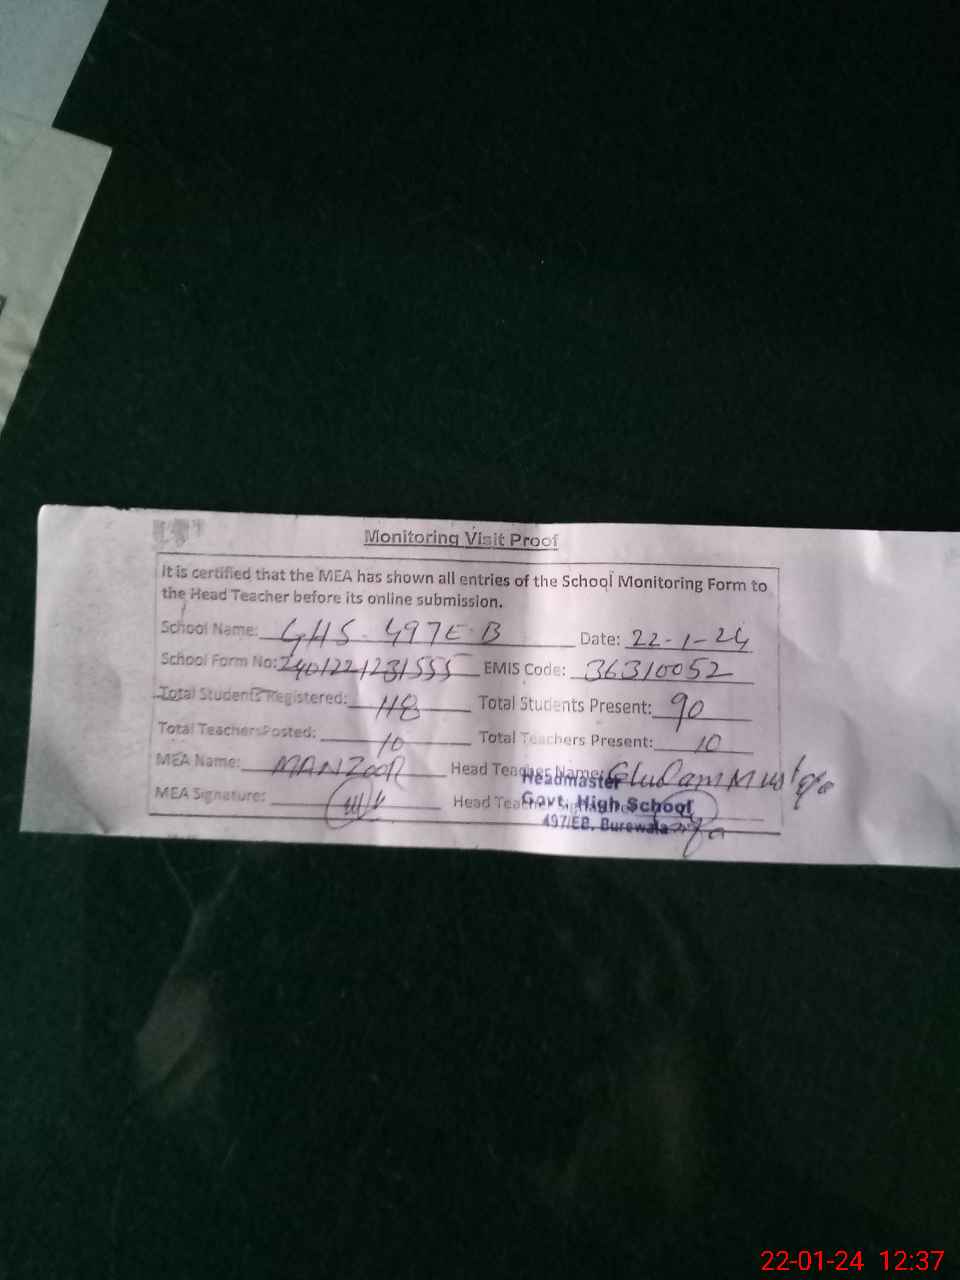 Monitoring Visit Proof
It is certified that the MEA has shown all entries of the School Monitoring Form to
the Head Teacher before its online submission.
School Name: GHS. 497E.B Date: 22-1-24
School Form No: 2401221231555 EMIS Code: 36310052
Total Students Registered: 118 Total Students Present: 90
Total Teachers Posted: 10 Total Teachers Present: 10
MEA Name: MANZOOR Head Teacher Name: Ghulam Mustafa
Headmaster
MEA Signature: Head Teacher Signature:
Govt. High School
497/EB, Burewala
22-01-24 12:37